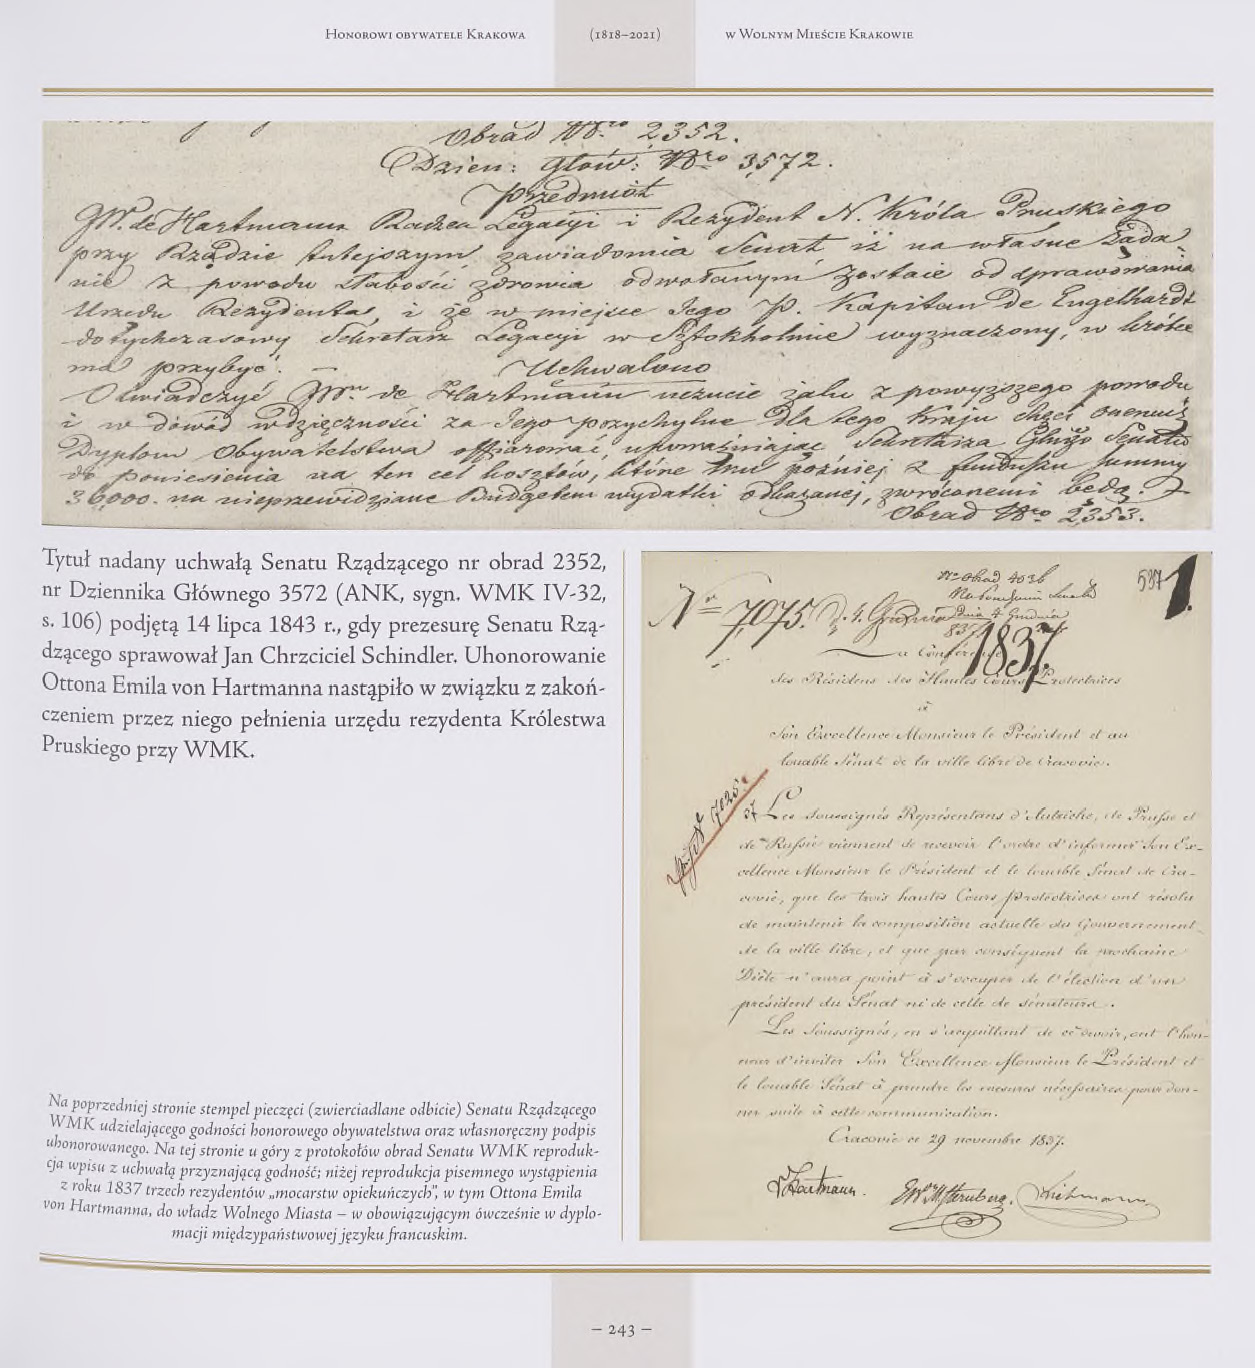 Honorowi obywatele Krakowa (1818–2021) w Wolnym Mieście Krakowie
Obrad Nro 2352.
Dzien: Głów: Nro 3572.
Przedmiot
JW. de Hartmann Radzca Legacyi i Rezydent N. Króla Pruskiego
przy Rządzie tutejszym, zawiadomia Senat iż na własne żąda-
nie z powodu słabości zdrowia odwołanym zostaie od sprawowania
Urzędu Rezydenta, i że w miejsce Jego P. Kapitan de Engelhardt
dotychczasowy Sekretarz Legacyi w Sztokholmie wyznaczony, w krótce
ma przybyć. —
Uchwalono
Oświadczyć JWu de Hartmann uczucie żalu z powyższego powodu
i w dowód wdzięczności za Jego przychylne dla tego Kraju chęci
Dyplom Obywatelstwa offiarować, upoważniając Sekretarza Głngo Senatu
do poniesienia na ten cel kosztów, które mu później z funduszu summy
36,000. na nieprzewidziane Budgetem wydatki odkazanej, zwróconemi będą.
Obrad Nro 2353.
Tytuł nadany uchwałą Senatu Rządzącego nr obrad 2352,
nr Dziennika Głównego 3572 (ANK, sygn. WMK IV-32,
s. 106) podjętą 14 lipca 1843 r., gdy prezesurę Senatu Rzą-
dzącego sprawował Jan Chrzciciel Schindler. Uhonorowanie
Ottona Emila von Hartmanna nastąpiło w związku z zakoń-
czeniem przez niego pełnienia urzędu rezydenta Królestwa
Pruskiego przy WMK.
Na poprzedniej stronie stempel pieczęci (zwierciadlane odbicie) Senatu Rządzącego
WMK udzielającego godności honorowego obywatelstwa oraz własnoręczny podpis
uhonorowanego. Na tej stronie u góry z protokołów obrad Senatu WMK reproduk-
cja wpisu z uchwałą przyznającą godność; niżej reprodukcja pisemnego wystąpienia
z roku 1837 trzech rezydentów „mocarstw opiekuńczych”, w tym Ottona Emila
von Hartmanna, do władz Wolnego Miasta – w obowiązującym ówcześnie w dyplo-
macji międzypaństwowej języku francuskim.
537 1.
No Obrad 4036
Na Senatu
Dnia 4 Grudnia
837
No 7,075. D. 4. Grudnia
1837.
La Conférence
des Résidens des Hautes Cours Protectrices
à
Son Excellence Monsieur le Président et au
louable Sénat de la ville libre de Cracovie.
No 7025
37
Les Soussignés Représentans d'Autriche, de Prusse et
de Russie viennent de recevoir l'ordre d'informer Son Ex-
cellence Monsieur le Président et le louable Sénat de Cra-
covie, que les trois hautes Cours protectrices ont résolu
de maintenir la composition actuelle du Gouvernement
de la ville libre, et que par conséquent la prochaine
Diète n'aura point à s'occuper de l'élection d'un
président du Sénat ni de celle de sénateurs.
Les Soussignés, en s'acquittant de ce devoir, ont l'hon-
neur d'inviter Son Excellence Monsieur le Président et
le louable Sénat à prendre les mesures nécessaires pour don-
ner suite à cette communication.
Cracovie ce 29 novembre 1837.
Hartmann. Liehmann
– 243 –